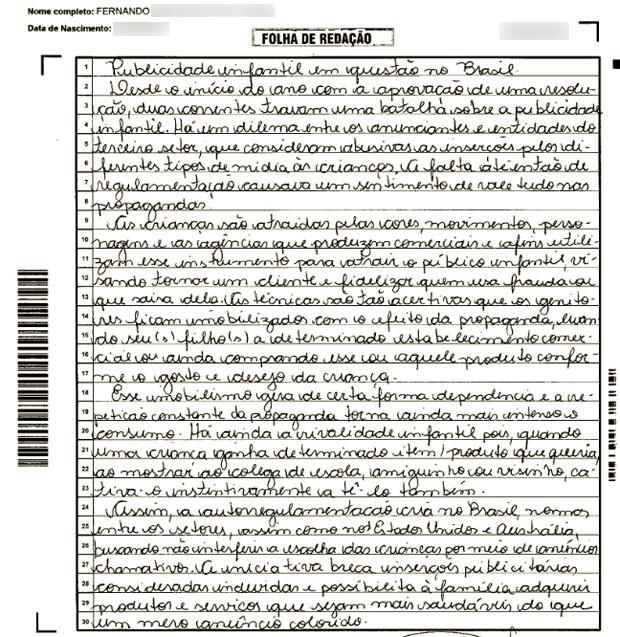 Nome completo: FERNANDO
Data de Nascimento:
FOLHA DE REDAÇÃO
1 Publicidade infantil em questão no Brasil.
2 Desde o início do ano com a aprovação de uma resolu-
3 ção, duas correntes travam uma batalha sobre a publicidade
4 infantil. Há um dilema entre os anunciantes e entidades do
5 terceiro setor, que consideram abusivas as inserções pelos di-
6 ferentes tipos de mídia às crianças. A falta até então de
7 regulamentação causava um sentimento de vale tudo nas
8 propagandas.
9 As crianças são atraídas pelas cores, movimentos, perso-
10 nagens e as agências que produzem comerciais e afins utili-
11 zam esse instrumento para atrair o público infantil, vi-
12 sando tornar um cliente e fidelizar quem usa fraulda ou
13 que saira dela. As técnicas são tão acertivas que os genito-
14 res ficam imobilizados com o efeito da propaganda, levan-
15 do seu(s) filho(s) a determinado estabelecimento comer-
16 cial ou ainda comprando esse ou aquele produto confor-
17 me o gosto e desejo da criança.
18 Esse imobilismo gera de certa forma dependência e a re-
19 petição constante da propaganda torna ainda mais intenso o
20 consumo. Há ainda a rivalidade infantil pois, quando
21 uma criança ganha determinado item/produto que queria,
22 ao mostrar ao colega de escola, amiguinho ou visinho, ca-
23 tiva-o instintivamente a tê-lo também.
24 Assim, a autorregulamentação cria no Brasil, normas
25 entre os setores, assim como nos Estados Unidos e Austrália,
26 buscando não interferir a escolha das crianças por meio de anúncios
27 chamativos. A iniciativa breca inserções publicitárias
28 consideradas indevidas e possibilita à família adquirir
29 produtos e serviços que sejam mais saudáveis do que
30 um mero anúncio colorido.